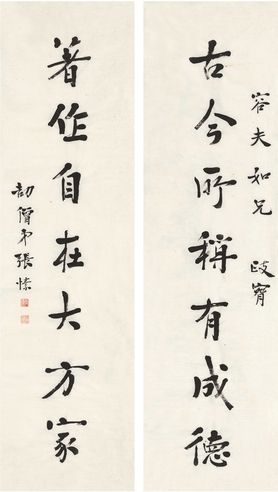 容夫如兄 政寶
古今所稱有成德
著作自在大方家
劼僧弟張愫